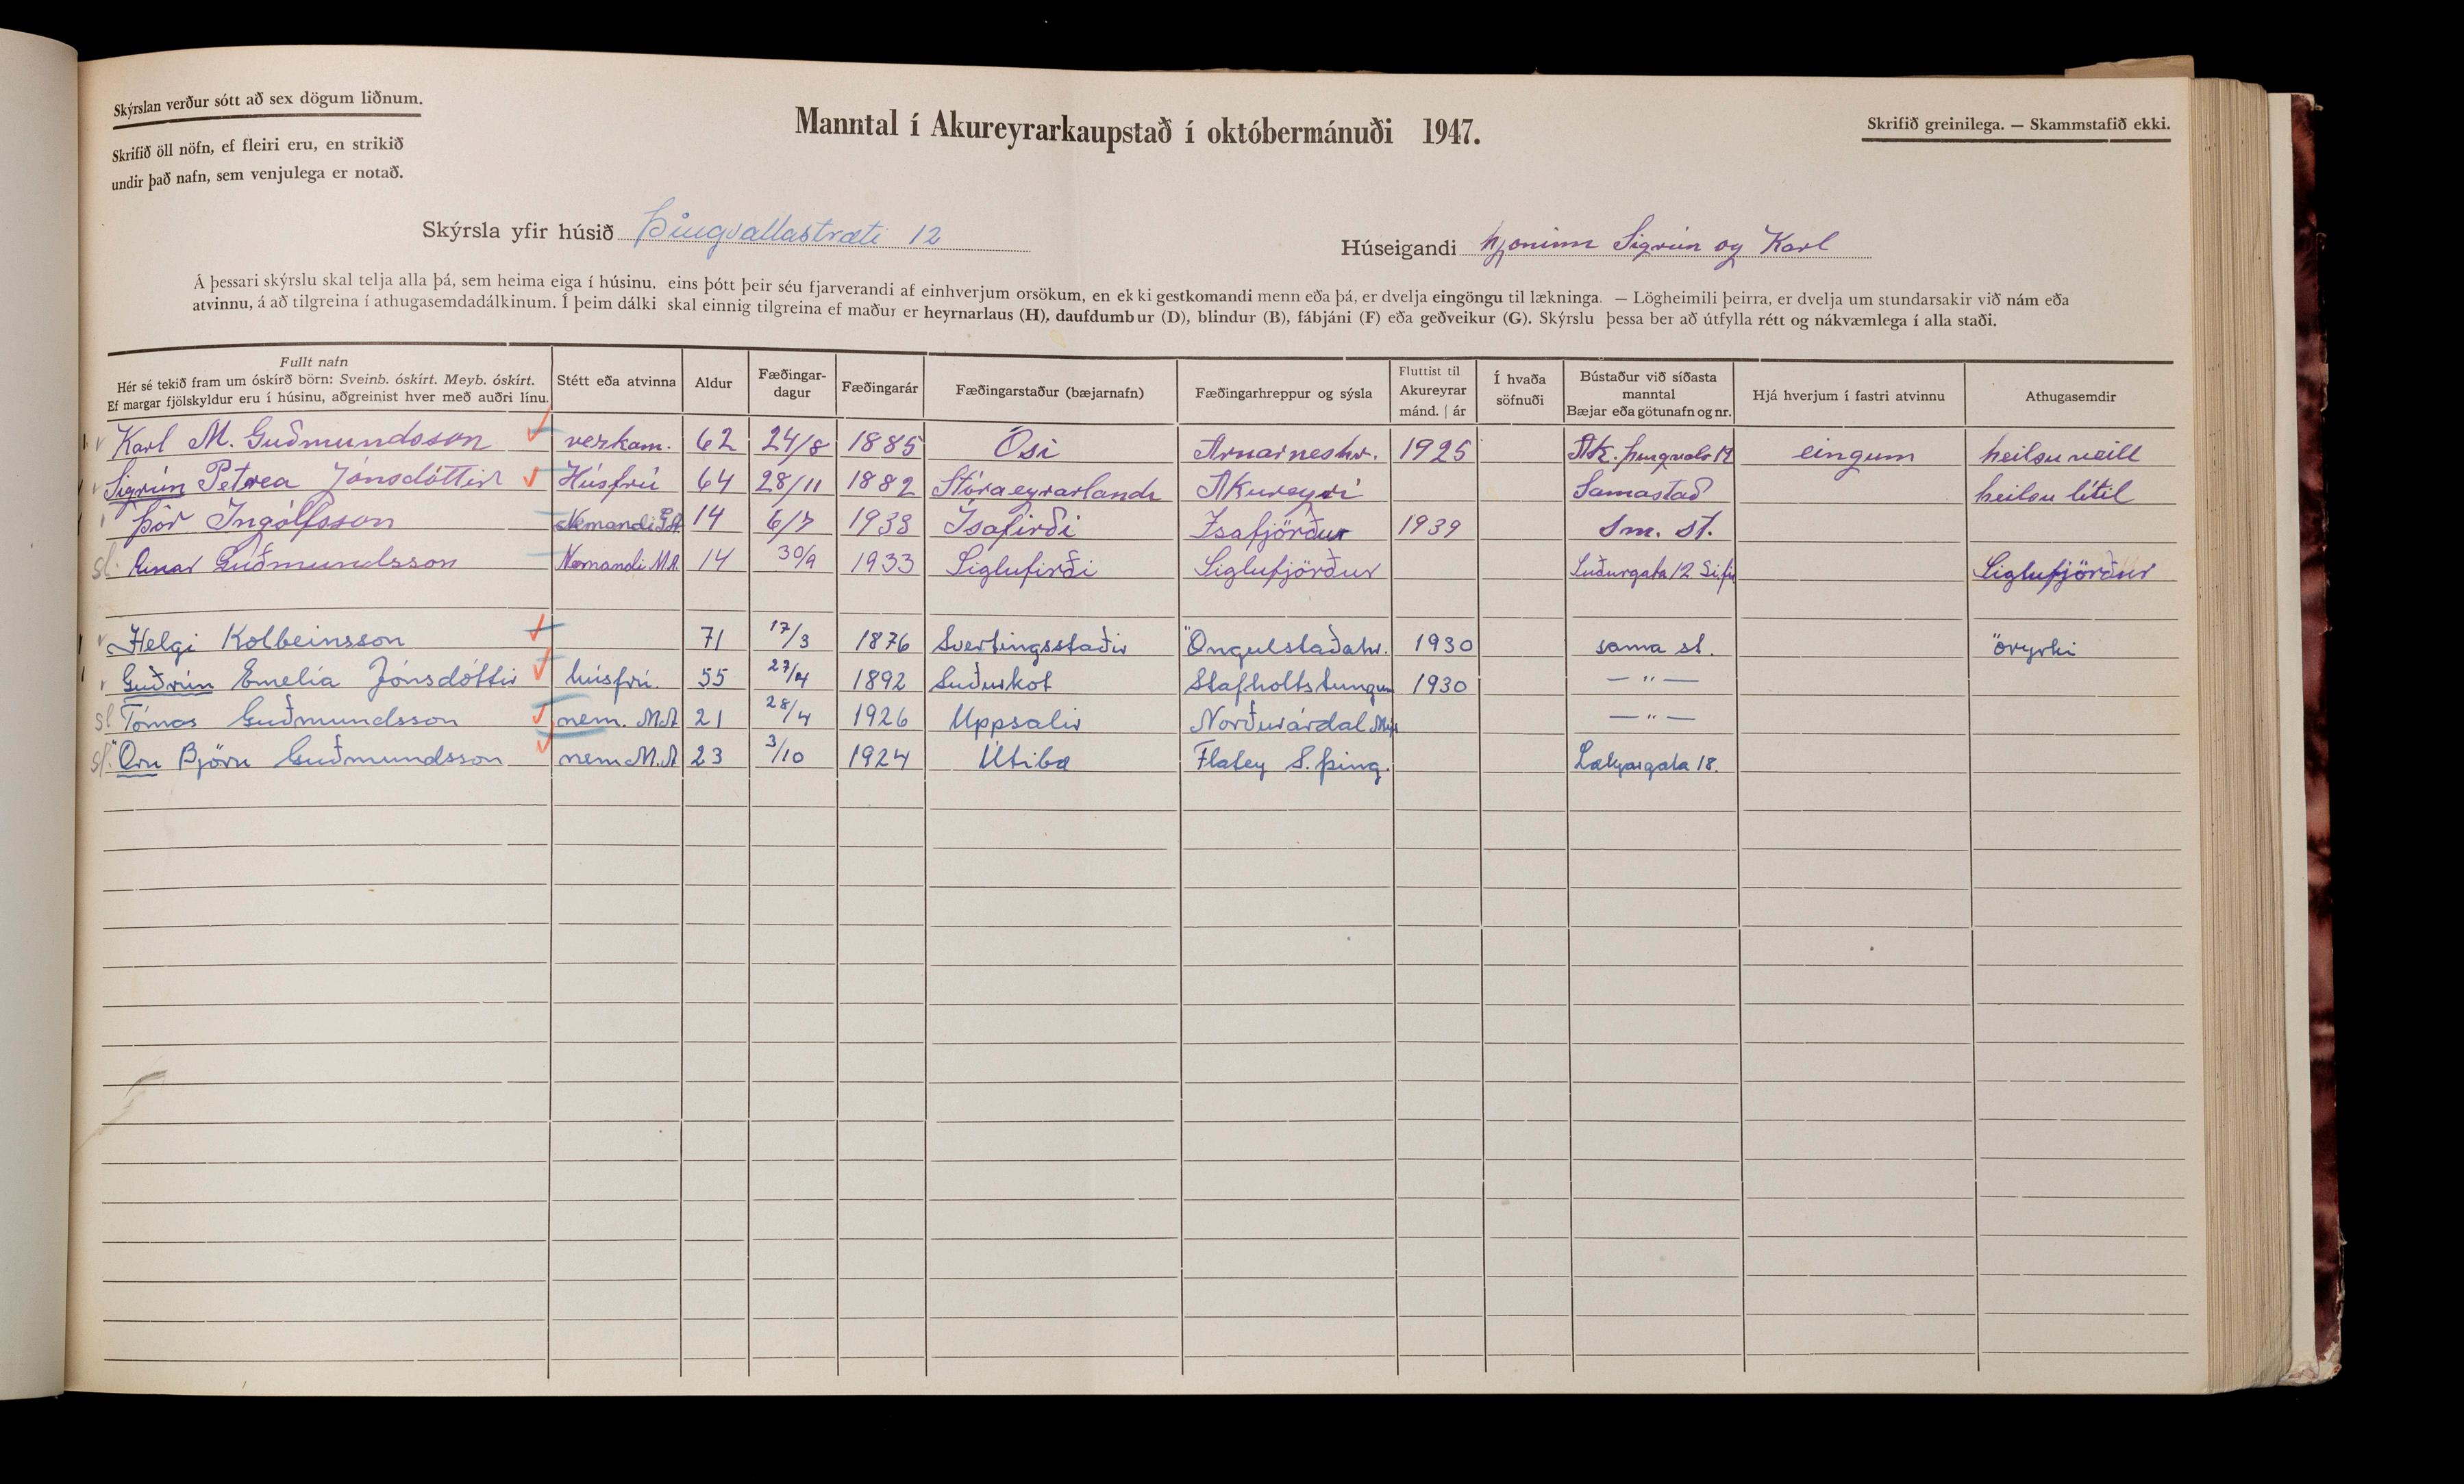 Skýrslan verður sótt að sex dögum liðnum.
Skrifið öll nöfn, ef fleiri eru, en strikið
undir það nafn, sem venjulega er notað.
Manntal í Akureyrarkaupstað í októbermánuði 1947.
Skrifið greinilega. — Skammstafið ekki.
Skýrsla yfir húsið Þingvallastræti 12
Húseigandi hjóninn Sigrún og Karl
Á þessari skýrslu skal telja alla þá, sem heima eiga í húsinu, eins þótt þeir séu fjarverandi af einhverjum orsökum, en ekki gestkomandi menn eða þá, er dvelja eingöngu til lækninga. — Lögheimili þeirra, er dvelja um stundarsakir við nám eða
atvinnu, á að tilgreina í athugasemdadálkinum. Í þeim dálki skal einnig tilgreina ef maður er heyrnarlaus (H), daufdumbur (D), blindur (B), fábjáni (F) eða geðveikur (G). Skýrslu þessa ber að útfylla rétt og nákvæmlega í alla staði.
Fullt nafn
Hér sé tekið fram um óskírð börn: Sveinb. óskírt. Meyb. óskírt.
Ef margar fjölskyldur eru í húsinu, aðgreinist hver með auðri línu.
Stétt eða atvinna
Aldur
Fæðingar-
dagur
Fæðingarár
Fæðingarstaður (bæjarnafn)
Fæðingarhreppur og sýsla
Fluttist til
Akureyrar
mánd. | ár
Í hvaða
söfnuði
Bústaður við síðasta
manntal
Bæjar eða götunafn og nr.
Hjá hverjum í fastri atvinnu
Athugasemdir
Karl M. Guðmundsson verkam. 62 24/8 1885 Ósi Arnarneshr. 1925 Ak. eingum heilsu veill
Sigrún Petrea Jónsdóttir Húsfrú 64 28/11 1882 Stóraeyrarlandi Akureyri Samastað heilsu lítil
Þór Ingólfsson Nemandi 14 6/7 1933 Ísafirði Ísafjörður 1939 Sm. st.
sl. Einar Guðmundsson Nemandi M.A. 14 30/9 1933 Siglufirði Siglufjörður Suðurgata 12 Siglufjörður
Helgi Kolbeinsson 71 17/3 1876 Svertingsstaðir Öngulstaðahr. 1930 sama st. öryrki
Guðrún Emelía Jónsdóttir húsfrú. 55 27/4 1892 Suðurkot Stafholtstungum 1930 — " —
sl Tómas Guðmundsson nem. M.A 21 28/4 1926 Uppsalir Norðurárdal — " —
sl. Örn Björn Guðmundsson nem M.A 23 3/10 1924 Útibæ Flatey S. Þing. Lækjargata 18.